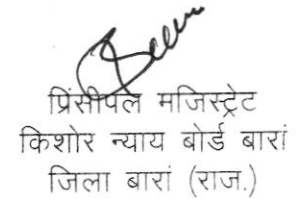 प्रिंसीपल मजिस्ट्रेट
किशोर न्याय बोर्ड बारां
जिला बारां (राज.)